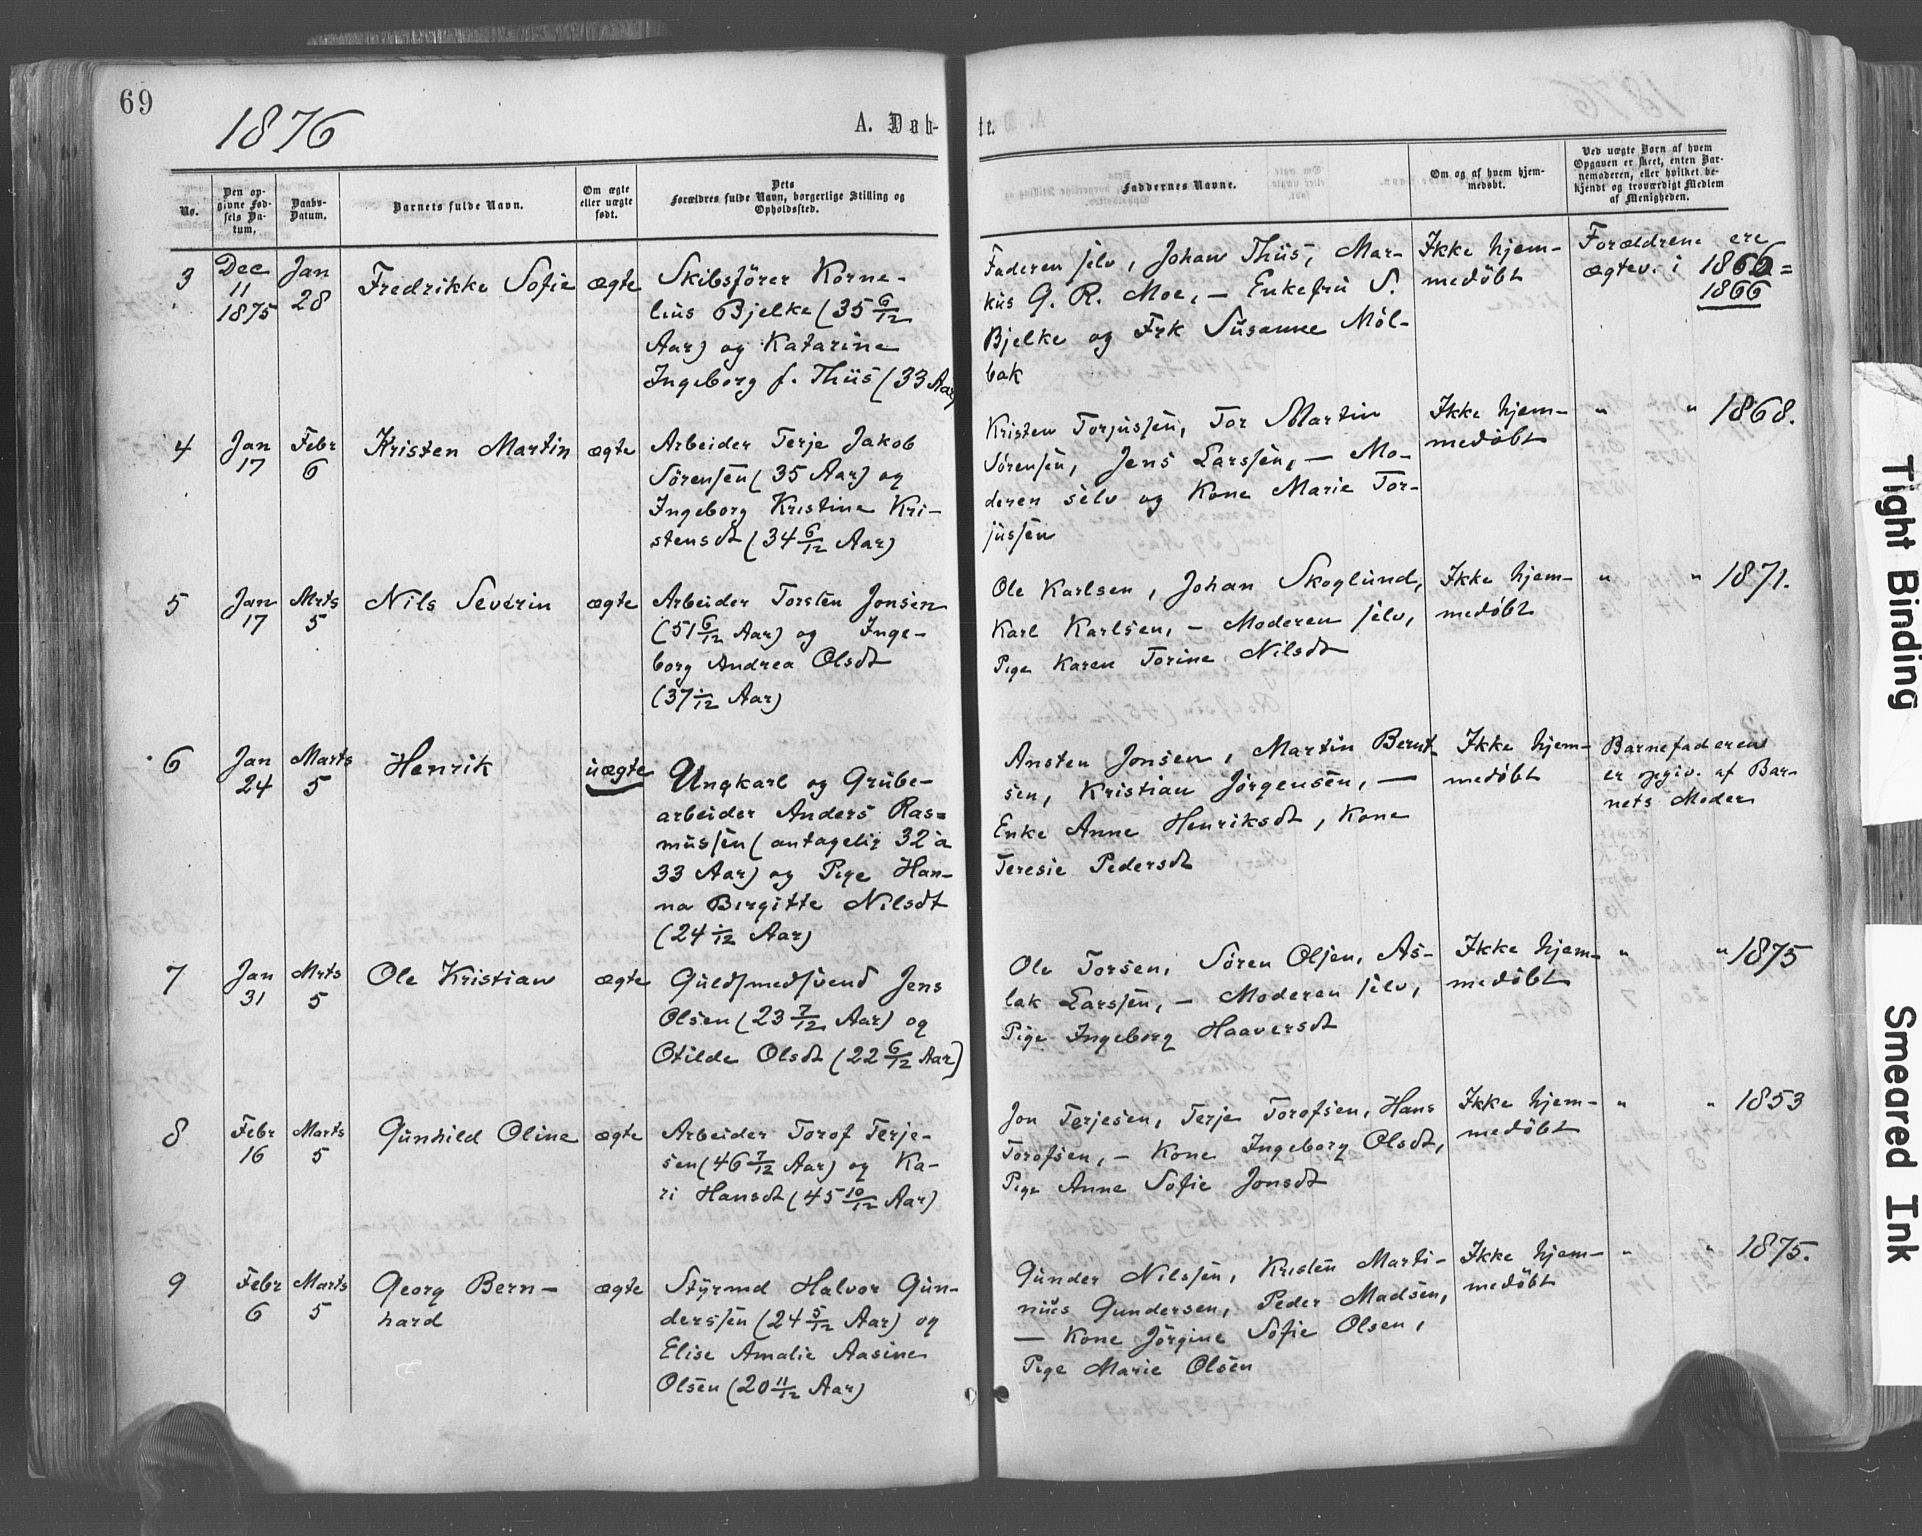 69
1876
A. Døb-
te.
No.
Den op-
givne Fød-
sels Da-
tum.
Daabs-
Datum.
Barnets fulde Navn.
Om ægte
eller uægte
født.
Dets
Forældres fulde Navn, borgerlige Stilling og
Opholdssted.
Faddernes Navne.
Om og af hvem hjem-
medøbt.
Ved uægte Børn af hvem
Opgaven er skeet, enten Bar-
nemoderen, eller hvilket be-
kjendt og troværdigt Medlem
af Menigheden.
3
Dec
11
1875
Jan
28
Fredrikke Sofie
ægte
Skibsfører Korne-
lius Bjelke (35 6/12
Aar) og Katarine
Ingeborg f. Thiis (33 Aar)
Faderen selv, Johan Thiis, Mar-
kus G. R. Moe, — Enkefru S.
Bjelke og Frk Susanne Møl-
bak
Ikke hjem-
medøbt
Forældrene ere
ægtev. i
1866=
1866
4
Jan
17
Febr
6
Kristen Martin
ægte
Arbeider Terje Jakob
Sørensen (35 Aar) og
Ingeborg Kristine Kri-
stensdt (34 6/12 Aar)
Kristen Torjussen, Tor Martin
Sørensen, Jens Larssen, — Mo-
deren selv og Kone Marie Tor-
jussen
Ikke hjem-
medøbt
" " 1868.
5
Jan
17
Mrts
5
Nils Severin
ægte
Arbeider Torsten Jonsen
(51 6/12 Aar) og Inge-
borg Andrea Olsdt
(37 1/12 Aar)
Ole Karlsen, Johan Skoglund,
Karl Karlsen, — Moderen selv,
Pige Karen Torine Nilsdt
Ikke hjem-
medøbt
" " 1871.
6
Jan
24
Marts
5
Henrik
uægte
Ungkarl og Grube-
arbeider Anders Ras=
mussen (antagelig 32 à
33 Aar) og Pige Han-
na Birgitte Nilsdt
(24 1/12 Aar)
Ansten Jonsen, Martin Bernt-
sen, Kristian Jørgensen, —
Enke Anne Henriksdt, Kone
Teresie Pedersdt
Ikke hjem-
medøbt
Barnefaderen
er opgiv. af Bar-
nets Moder
7
Jan
31
Mrts
5
Ole Kristian
ægte
Guldsmedsvend Jens
Olsen (23 7/12 Aar) og
Otilde Olsdt (22 6/12 Aar)
Ole Torsen, Søren Olsen, As-
lak Larssen, — Moderen selv,
Pige Ingeborg Haaversdt
Ikke hjem-
medøbt
" " 1875
8
Febr
16
Marts
5
Gunhild Oline
ægte
Arbeider Torof Terje-
sen (46 7/12 Aar) og Ka-
ri Hansdt (45 10/12 Aar)
Jon Terjesen, Terje Torofsen, Hans
Torofsen, — Kone Ingeborg Olsdt,
Pige Anne Sofie Jonsdt
Ikke hjem-
medøbt
" " 1853
9
Febr
6
Marts
5
Georg Bern-
hard
ægte
Styrmd Halvor Gun-
derssen (24 5/12 Aar) og
Elise Amalie Aasine
Olsen (20 11/12 Aar)
Gunder Nilssen, Kristen Marti-
nius Gundersen, Peder Madsen,
— Kone Jørgine Sofie Olsen,
Pige Marie Olsen
Ikke hjem-
medøbt
" " 1875.
Tight Binding
Smeared Ink